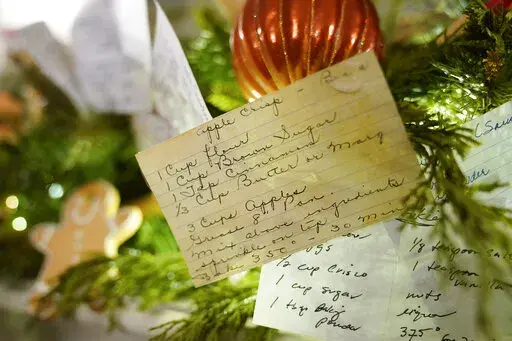 apple Crisp -
1 Cup flour
1 Cup Brown Sugar
1 Tsp Cinnamon
1/3 Cup Butter or Marg
3 Cups Apples
Grease 8" pan.
Mix above ingredients
sprinkle on top 30 Min
350°
1/2 cup Crisco
1 cup sugar
1 tbsp Baking
Powder
1/8 teaspoon salt
1 teaspoon
nuts
375°